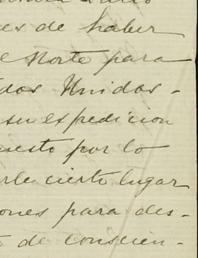 es de haber
e Norte para
dos Unidos -
su espedicion
uesto por lo
rle cierto lugar
ones para des-
de conscien-